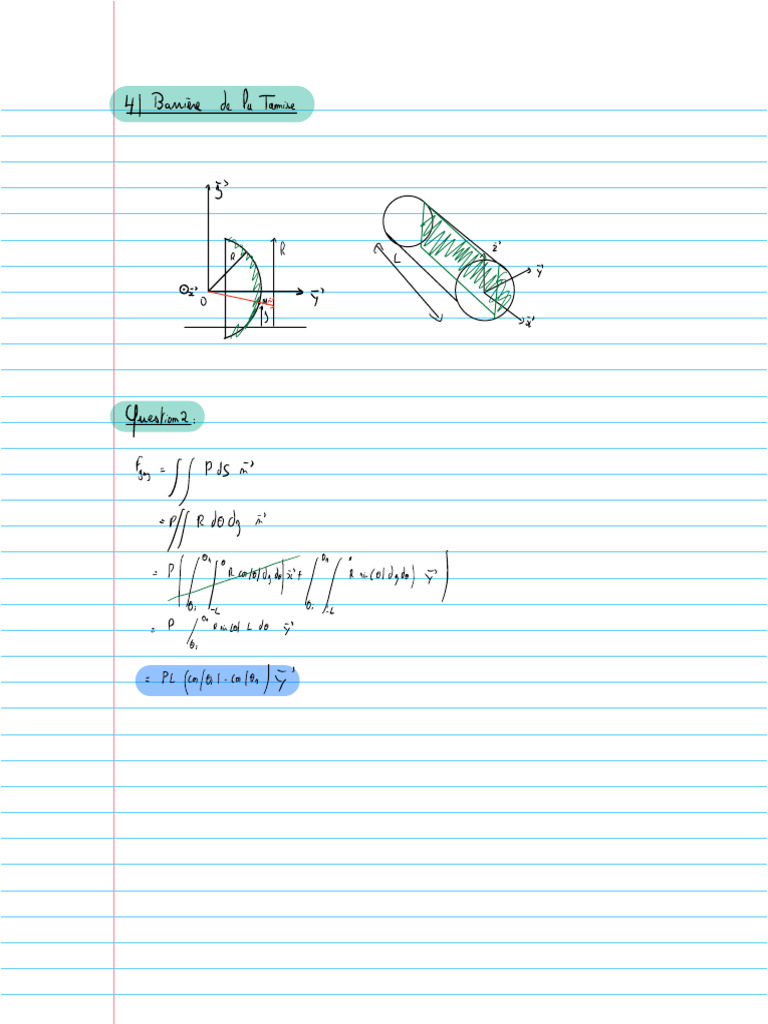 4) Barrière de la Tamise
z⃗
R
R
x⃗
O
y⃗
M
z
L
z⃗
y⃗
x⃗
Question 2 :
= ∫∫ P dS n⃗
= P ∫∫ R dθ dz n⃗
= P ( ∫θi^θ1 ∫-L^0 R cos(θ) dz dθ ) x⃗ + ∫θi^θ1 ∫-L^0 R sin(θ) dz dθ ) y⃗ )
= P ∫θi^θ1 R sin(θ) L dθ y⃗
= PL (cos(θi) - cos(θ1)) y⃗